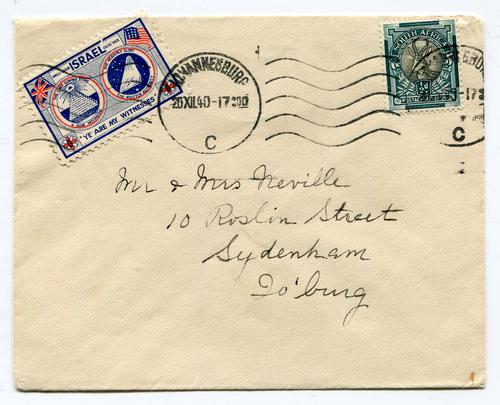 ISRAEL
"YE ARE MY WITNESSES"
JOHANNESBURG
20 XII 40-17
C
SOUTH AFRICA
C
Mr & Mrs Neville
10 Roslin Street
Sydenham
Jo'burg